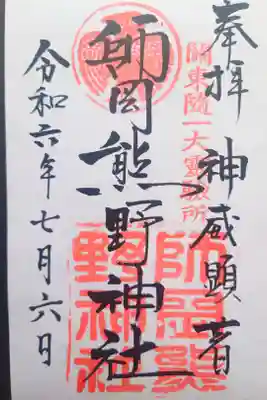 奉拝 神威顕著
關東随一大霊験所
師岡熊野神社
師岡熊野神社
令和六年七月六日